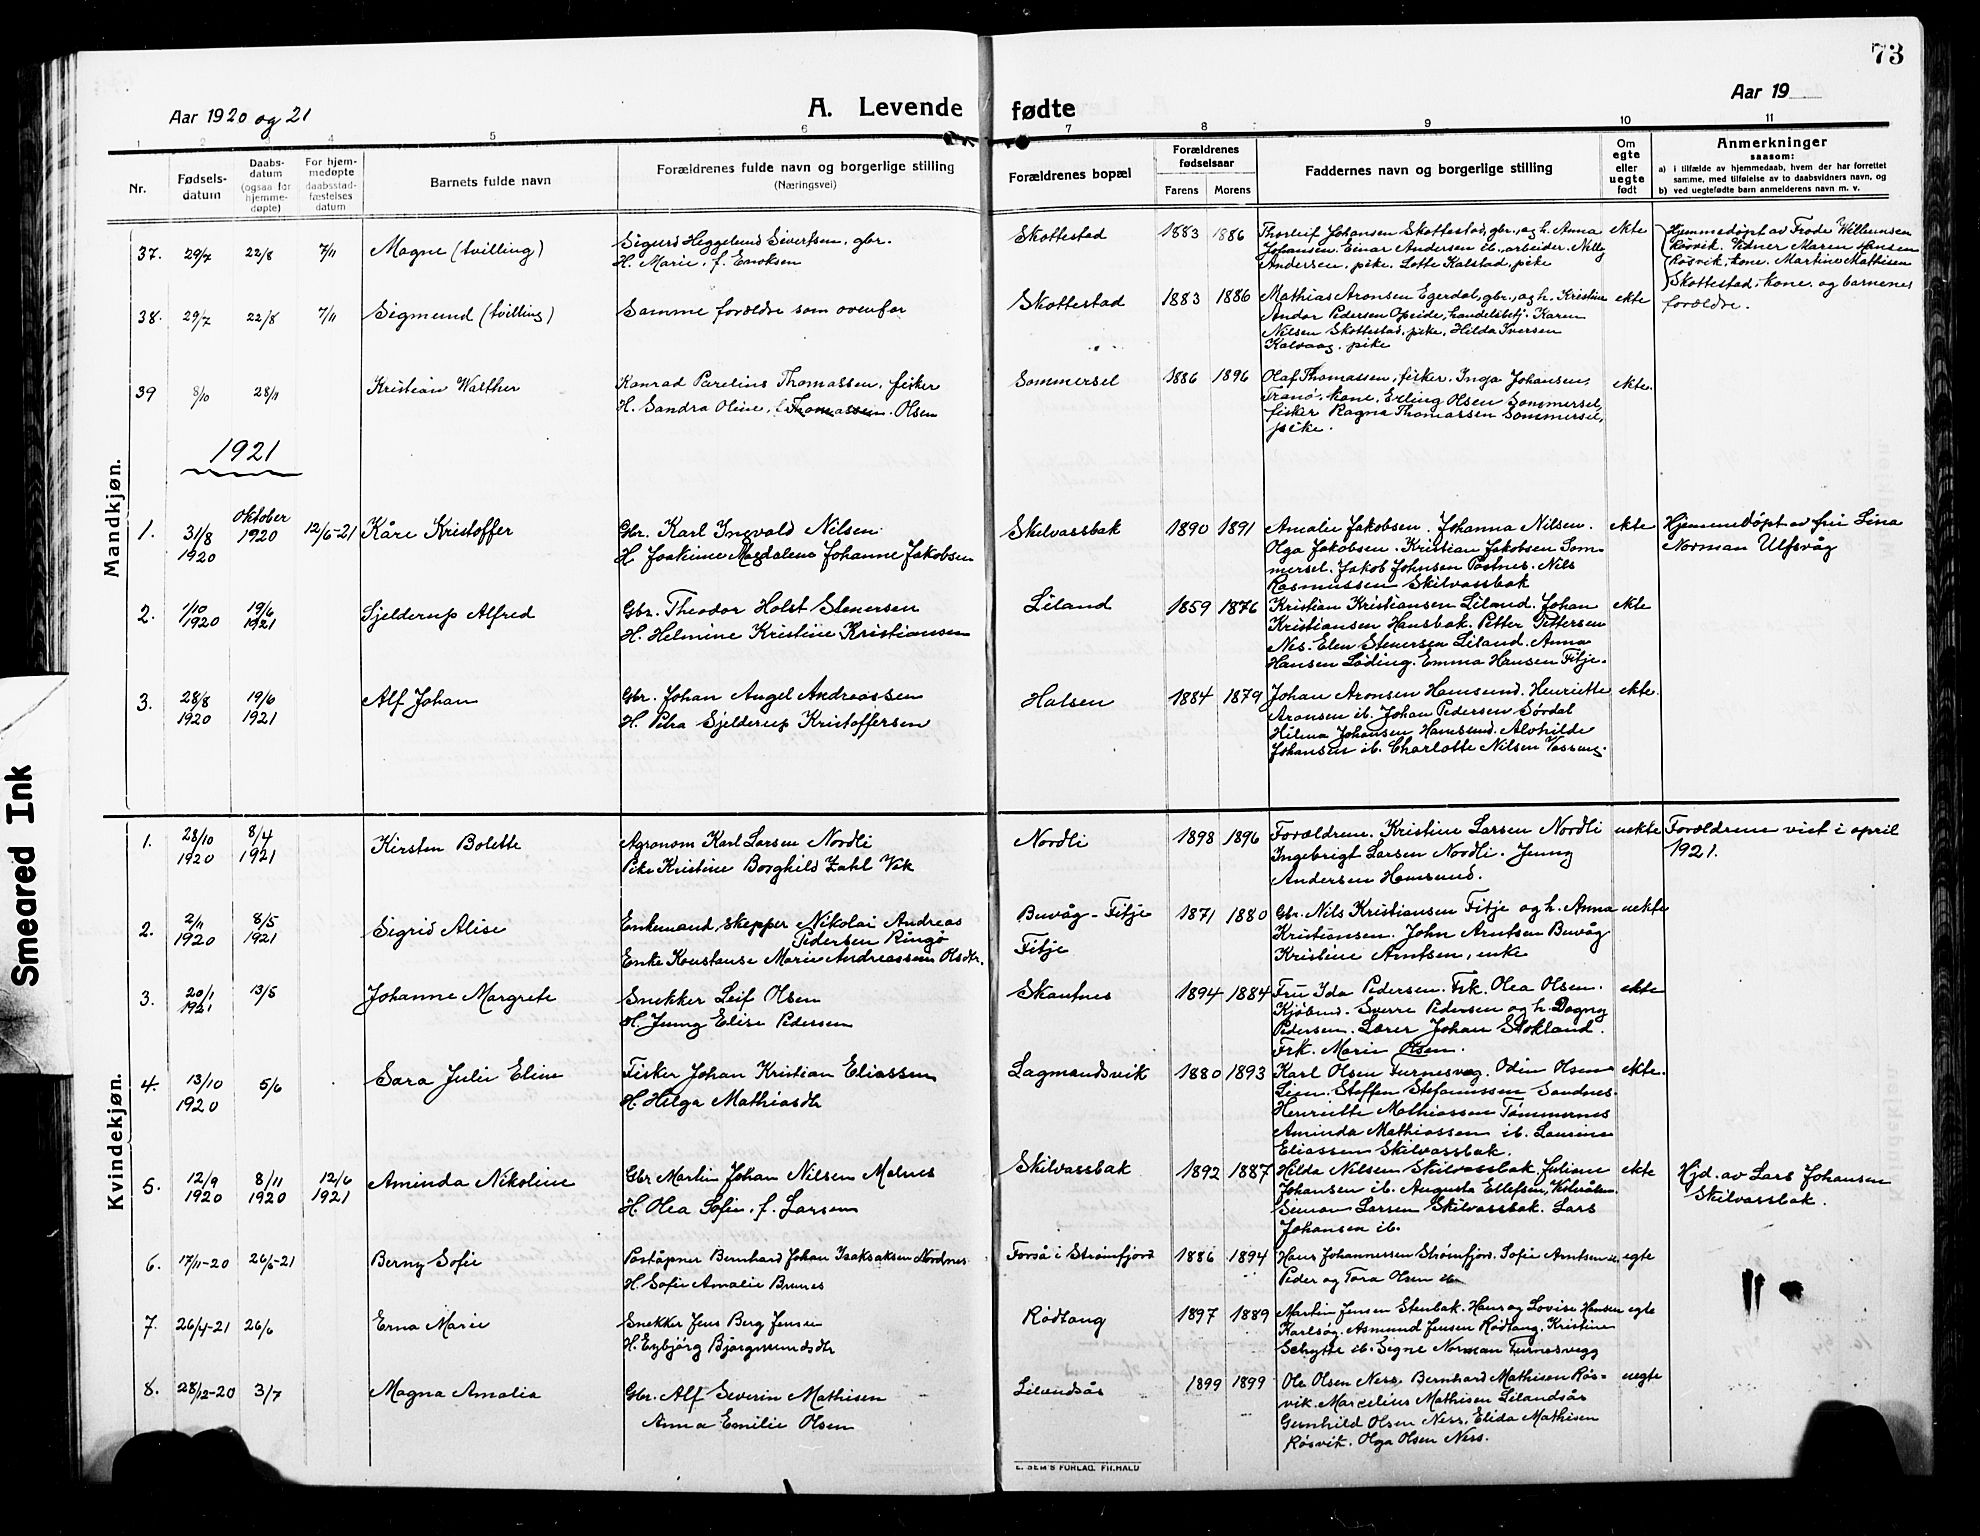 73
Aar 1920 og 21
A. Levende fødte
Aar 19
1 2 3 4 5 6 7 8 9 10 11
Nr.
Fødsels-
datum
Daabs-
datum
(ogsaa for
hjemme-
døpte)
For hjem-
medøpte
daabsstad-
fæstelses
datum
Barnets fulde navn
Forældrenes fulde navn og borgerlige stilling
(Næringsvei)
Forældrenes bopæl
Forældrenes
fødselsaar
Farens Morens
Faddernes navn og borgerlige stilling
Om
egte
eller
uegte
født
Anmerkninger
saasom:
a) i tilfælde av hjemmedaab, hvem der har forrettet
samme, med tilføielse av to daabsvidners navn, og
b) ved uegtefødte barn anmelderens navn m. v.
Mandkjøn.
37. 29/7 22/8 7/11 Magne (tvilling)
Sigurd Heggelund Sivertsen, gbr.
H. Marie, f. Enoksen
Skottestad 1883 1886
Thorleif Johansen Skottestad, gbr., og h. Anna
Johansen. Einar Andersen ib., arbeider. Nelly
Andersen, pike. Lotte Kalstad, pike
ekte
Hjemmedøpt av Frode Wilhumsen
Røsvik. Vidner Maren Hansen
Røsvik, kone. Martine Mathisen
Skottestad, kone. og barnenes
forældre.
38. 29/7 22/8 7/11 Sigmund (tvilling)
Samme forældre som ovenfor
Skottestad 1883 1886
Mathias Aronsen Egerdal, gbr., og h. Kristine
Andor Pedersen Opeide, handelsbetj. Karen
Nilsen Skottestad, pike, Hilda Iversen
Kalvaag, pike
ekte
39 8/10 28/11 Kristian Walther
Konrad Parelius Thomassen, fisker
H. Sandra Oline, f. Thomassen. Olsen
Sommersel 1886 1896
Olaf Thomassen, fisker. Inga Johansen,
Tranø, kone, Erling Olsen Sommersel,
fisker Ragna Thomassen Sommersel,
pike.
ekte.
1921
1. 31/8 1920 Oktober 1920 12/6-21 Kåre Kristoffer
Gbr. Karl Ingvald Nilsen
H Joakime Magdalene Johanne Jakobsen
Skilvassbak 1890 1891
Amalie Jakobsen. Johanna Nilsen.
Olga Jakobsen. Kristian Jakobsen Som-
mersel. Jakob Johnsen Postnes. Nils
Rasmussen Skilvassbak
ekte
Hjemmedøpt av fru Lina
Norman Ulfsvåg
2. 1/10 1920 19/6 1921 Sjelderup Alfred
Gbr. Theodor Holst Stenersen
H. Helmine Kristine Kristiansen
Liland 1859 1876
Kristian Kristiansen Liland. Johan
Kristiansen Hansbak. Petter Pettersen
Nes. Elen Stenersen Liland. Anna
Hansen Løding. Emma Hansen Fitje.
ekte
3. 28/8 1920 19/6 1921 Alf Johan
Gbr. Johan Angel Andreassen
H. Petra Sjelderup Kristoffersen
Halsen 1884 1879
Johan Aronsen Hamsund. Henriette
Aronsen ib. Johan Pedersen Sørdal
Hilma Johansen Hamsund. Alvhilde
Johansen ib. Charlotte Nilsen Vassaug.
ekte.
Kvindekjøn.
1. 28/10 1920 8/4 1921 Kirsten Bolette
Agronom Karl Larsen Nordli
Pike Kristine Borghild Zahl Vik
Nordli 1898 1896
Forældrene. Kristine Larsen Nordli
Ingebrigt Larsen Nordli. Jenny
Andersen Hamsund.
uekte
Forældrene viet i april
1921.
2. 2/11 1920 8/5 1921 Sigrid Alise
Enkemand skepper Nikolai Andreas
Pedersen Ringø
Enke Konstanse Marie Andreassen Olsdtr.
Buvåg - Fitje
Fitje
1871 1880
Gbr. Nils Kristiansen Fitje og h. Anna
Kristiansen. John Arntsen Buvåg
Kristine Arntsen, enke
uekte
3. 20/1 1921 13/5 Johanne Margrete
Snekker Leif Olsen
H. Jenny Elise Pedersen
Skantnes 1894 1884
Fru Ida Pedersen. Frk. Olea Olsen.
Kjøbmd. Sverre Pedersen og h. Dagny
Pedersen. Lærer Johan Stokland.
Frk. Marie Olsen.
ekte
4. 13/10 1920 5/6 Sara Julie Eline
Fisker Johan Kristian Eliassen
H. Helga Mathiasdtr
Lagmandsvik 1880 1893
Karl Olsen Furnesveg. Odin Olsen
Lien. Steffen Stefanussen Sandnes.
Henriette Mathiassen Tømmernes
Aminda Mathiassen ib. Laurine
Eliassen Skilvassbak.
ekte.
5. 12/9 1920 8/11 1920 12/6 1921 Aminda Nikoline
Gbr Martin Johan Nilsen Malnes
H. Olea Sofie, f. Larsen
Skilvassbak 1892 1887
Hilda Nilsen Skilvassbak. Juliane
Johansen ib. Augusta Ellefsen,
Simon Larsen Skilvassbak. Lars
Johansen ib.
ekte
Hjd. av Lars Johansen
Skilvassbak.
6. 17/11-20 26/5-21 Berny Sofie
Poståpner Bernhard Johan Isaksaksen Nordnes
H. Sofie Amalie Brunes
Forså i Strømfjord 1886 1894
Hans Johannessen Strømfjord. Sofie Arntsen ib.
Peder og Tora Olsen ib
egte
7. 26/4-21 26/6 Erna Marie
Snekker Jens Berg Jensen
H. Eybjörg Bjørgmundsdtr
Rødtang 1897 1889
Martin Jensen Stenbak. Hans og Lovise Hansen
Karlsøg. Asmund Jensen Rødtang. Kristine
Schytte ib. Signe Norman Furnesvegg
egte
8. 28/12-20 3/7 Magna Amalia
Gbr. Alf Severin Mathisen
Anna Emilie Olsen
Lilandsås 1899 1899
Ole Olsen Ness. Bernhard Mathisen Røs-
vik. Marcelius Mathisen Lilandsås
Gunhild Olsen Ness. Elida Mathisen
Røsvik. Olga Olsen Ness.
uegte
E. SEM'S FORLAG, FR.HALD
Smeared Ink